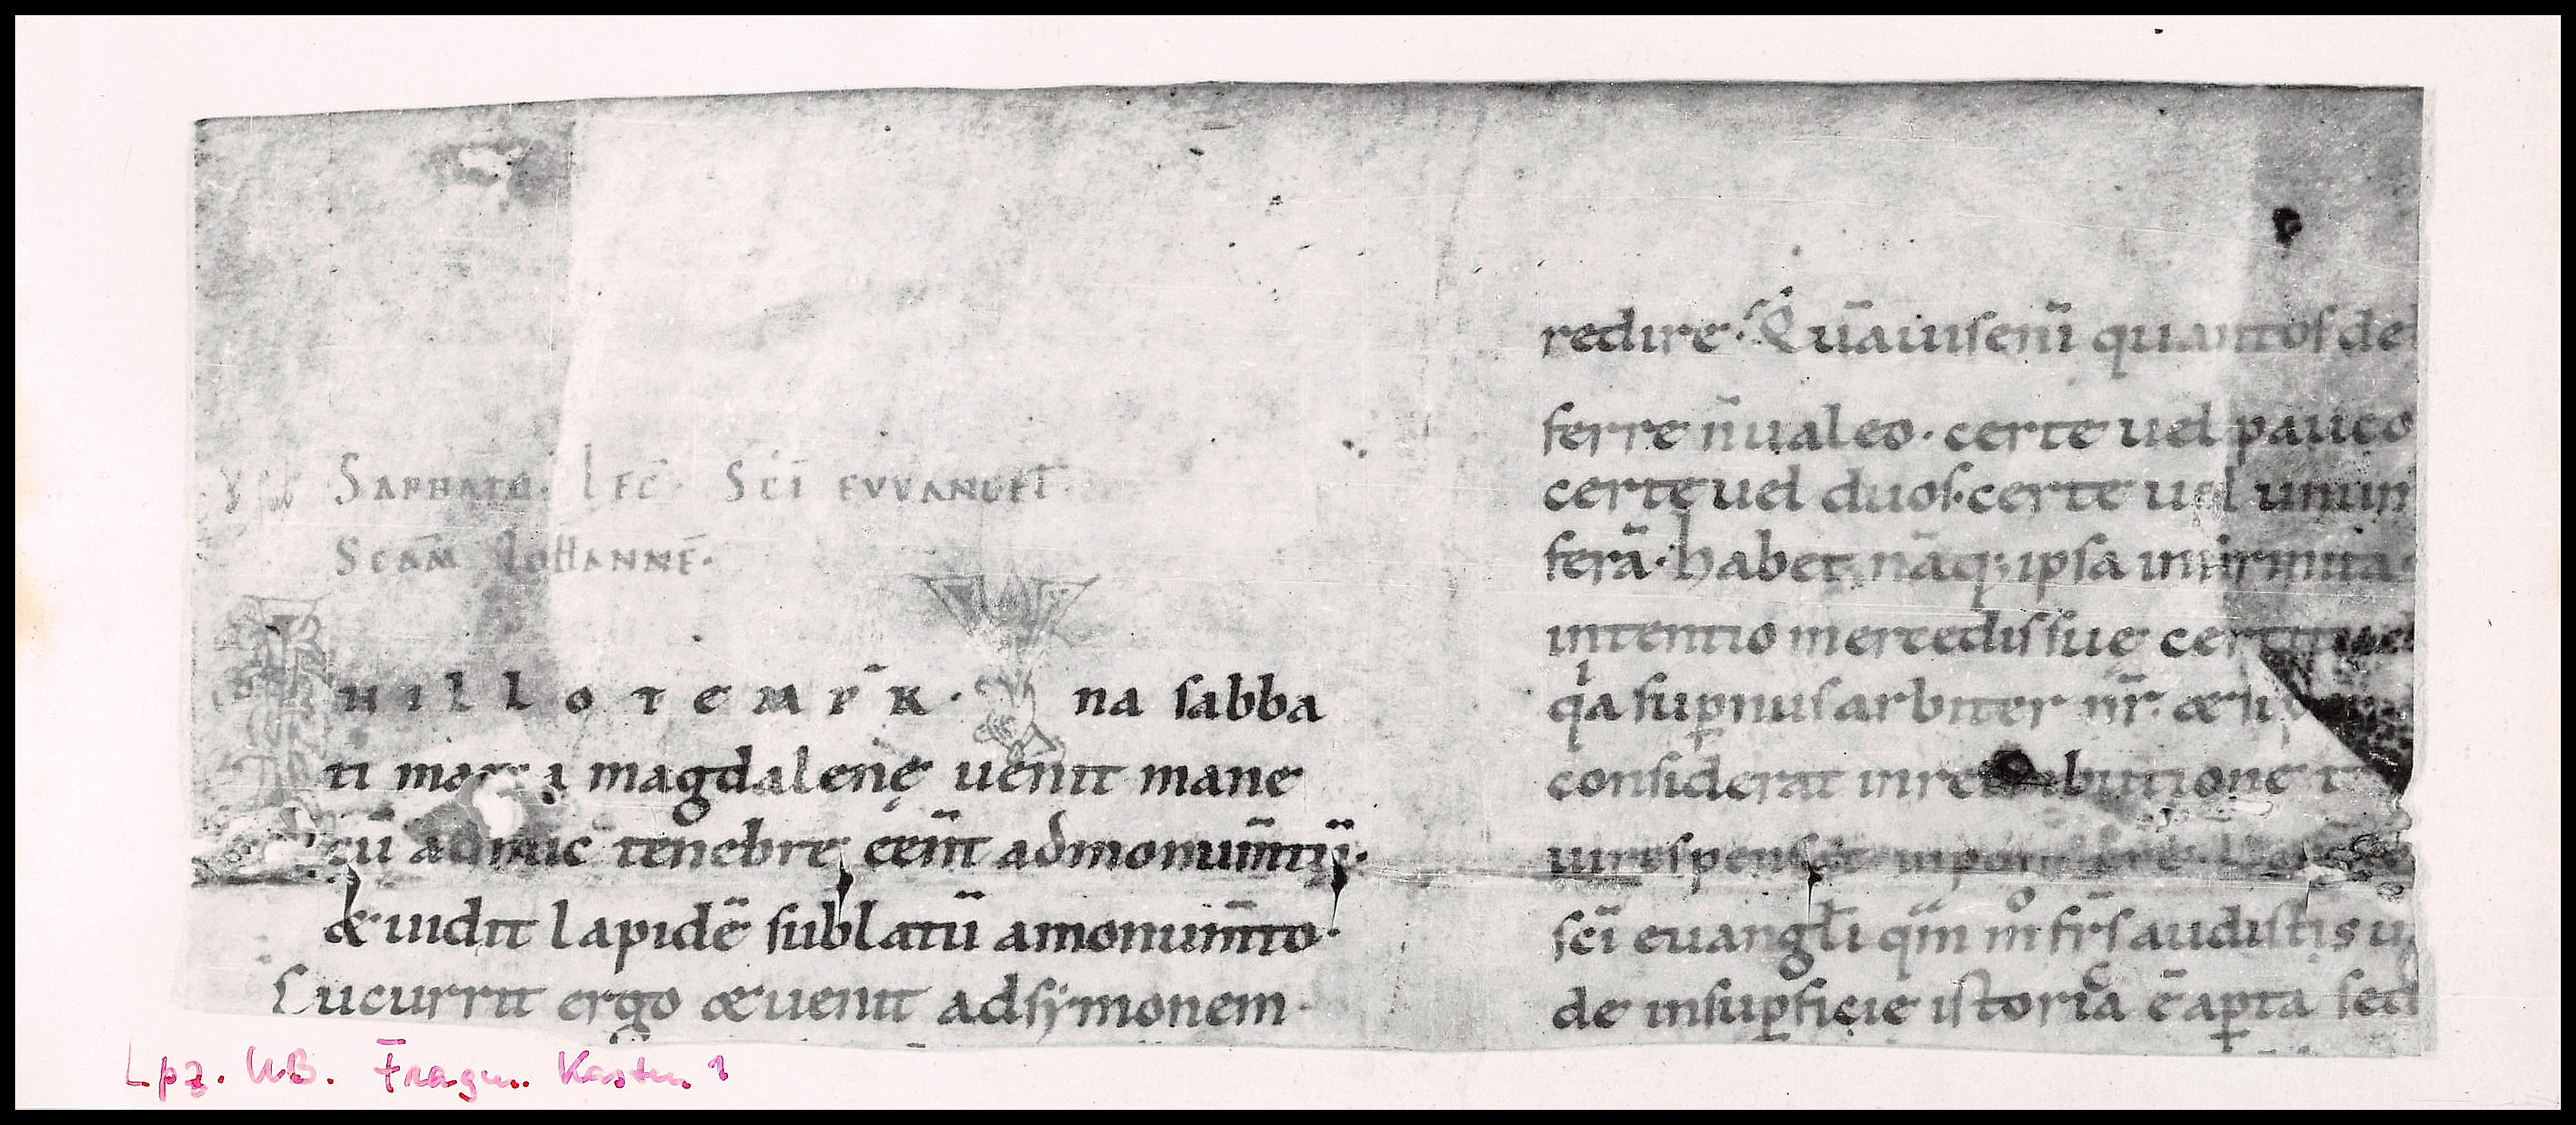 SABBATO. LEC̄. SC̄I EVVANGEL̄.
SCḠM IOHANNĒ.
IN ILLO TEMPR̄. Vna sabba
ti maria magdalenę uenit mane
cū adhuc tenebrę eēnt ad monumtū.
& uidit lapidē sublatū a monum̄to.
Cucurrit ergo & uenit ad symonem
redire. Quā uiseru quantos de
ferre n̄ ualeo. certe uel pauco
certe uel duos. certe uel unum
ferā. habet nāq; ipsa infirmita
intentio mercedis sue cert
q̓a sup̱nus arbiter nr̄. &si
considerat in retributione t
uires pensat
sc̄i euangl̄i qm̄ m̊ fr̄s audistis u
de in sup̱ficie istorica ē ap̱ta sed
Lpz. UB. Fragm. Kasten 1